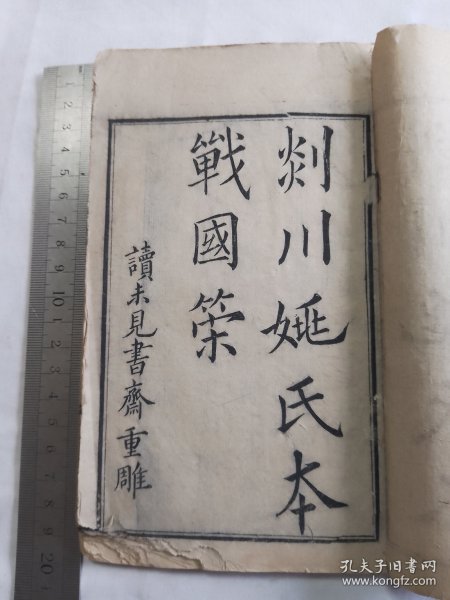 剡川姚氏本
戰國策
讀未見書齋重雕
1 2 3 4 5 6 7 8 9 10 11 12 13 14 15 16 17 18 19 20
孔夫子旧书网
www.kongfz.com